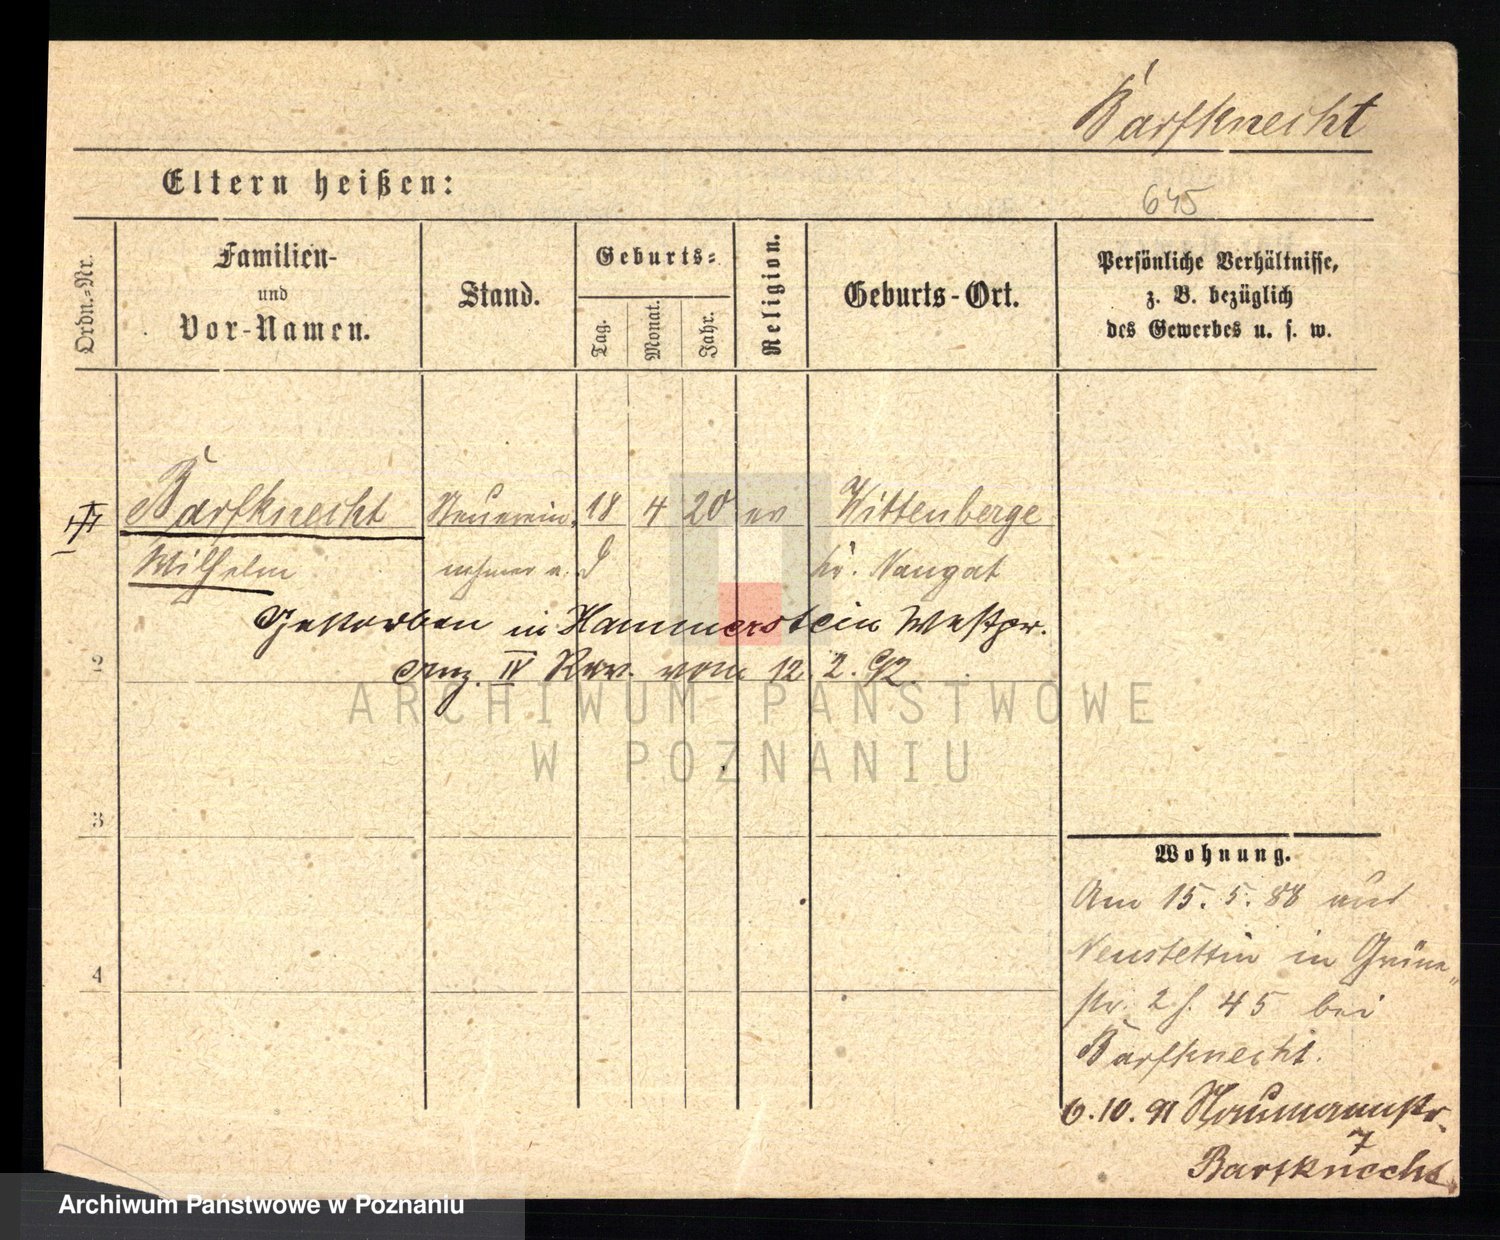 Barfknecht
Eltern heißen:
645
Ordn.-Nr.
Familien-
und
Vor-Namen.
Stand.
Geburts-
Tag.
Monat.
Jahr.
Religion.
Geburts-Ort.
Persönliche Verhältnisse,
z. B. bezüglich
des Gewerbes u. s. w.
Barfknecht Steuerein, 18 4 20 ev Wittenberge
Wilhelm nehmer a. D Kr. Naugat
Gestorben in Hammerstein Westpr.
Anz. IV Rev. vom 12 2. 92.
2
ARCHIWUM PAŃSTWOWE
W POZNANIU
3
4
Wohnung.
Am 15. 5. 88 aus
Neustettin in Grüne
str. 2 45 bei
Barfknecht.
6.10.91 Naumannstr.
7
Barfknecht
Archiwum Państwowe w Poznaniu